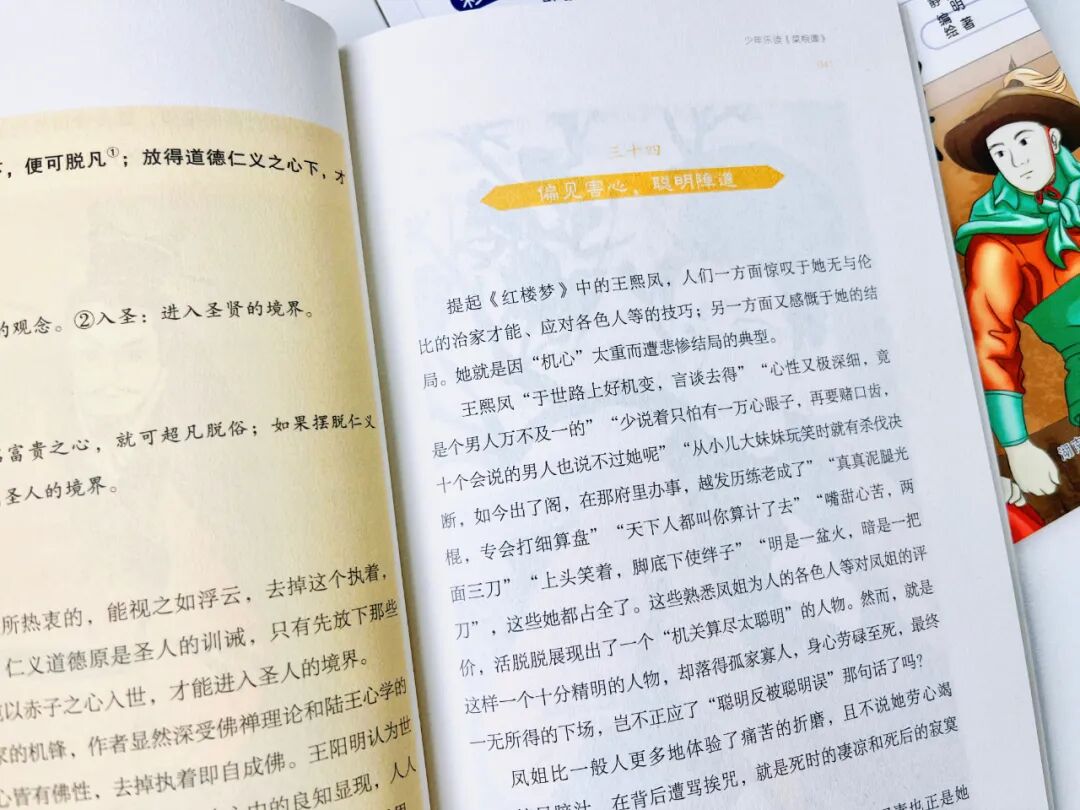 ，便可脱凡①；放得道德仁义之心下，才
的观念。②入圣：进入圣贤的境界。
富贵之心，就可超凡脱俗；如果摆脱仁义
圣人的境界。
所热衷的，能视之如浮云，去掉这个执着，
仁义道德原是圣人的训诫，只有先放下那些
以赤子之心入世，才能进入圣人的境界。
家的机锋，作者显然深受佛禅理论和陆王心学的
心皆有佛性，去掉执着即自成佛。王阳明认为世
心中的良知显现，人人
少年乐读《菜根谭》
三十四
偏见害心，聪明障道
提起《红楼梦》中的王熙凤，人们一方面惊叹于她无与伦
比的治家才能、应对各色人等的技巧；另一方面又感慨于她的结
局。她就是因“机心”太重而遭悲惨结局的典型。
王熙凤“于世路上好机变，言谈去得”“心性又极深细，竟
是个男人万不及一的”“少说着只怕有一万心眼子，再要赌口齿，
十个会说的男人也说不过她呢”“从小儿大妹妹玩笑时就有杀伐决
断，如今出了阁，在那府里办事，越发历练老成了”“真真泥腿光
棍，专会打细算盘”“天下人都叫你算计了去”“嘴甜心苦，两
面三刀”“上头笑着，脚底下使绊子”“明是一盆火，暗是一把
刀”，这些她都占全了。这些熟悉凤姐为人的各色人等对凤姐的评
价，活脱脱展现出了一个“机关算尽太聪明”的人物。然而，就是
这样一个十分精明的人物，却落得孤家寡人，身心劳碌至死，最终
一无所得的下场，岂不正应了“聪明反被聪明误”那句话了吗？
凤姐比一般人更多地体验了痛苦的折磨，且不说她劳心竭
在背后遭骂挨咒，就是死时的凄凉和死后的寂寞
也正是她
静 明
编
绘著
湖